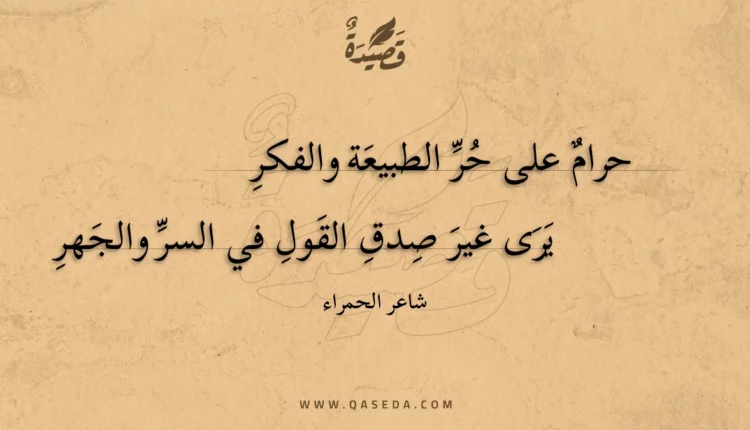 قَصِيْدَةٌ
حرامٌ على حُرِّ الطبيعَة والفكرِ
يَرَى غيرَ صِدقِ القَولِ في السرِّ والجَهرِ
شاعر الحمراء
WWW.QASEDA.COM